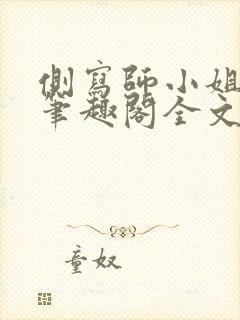 側寫師小姐
筆趣閣全文
童奴